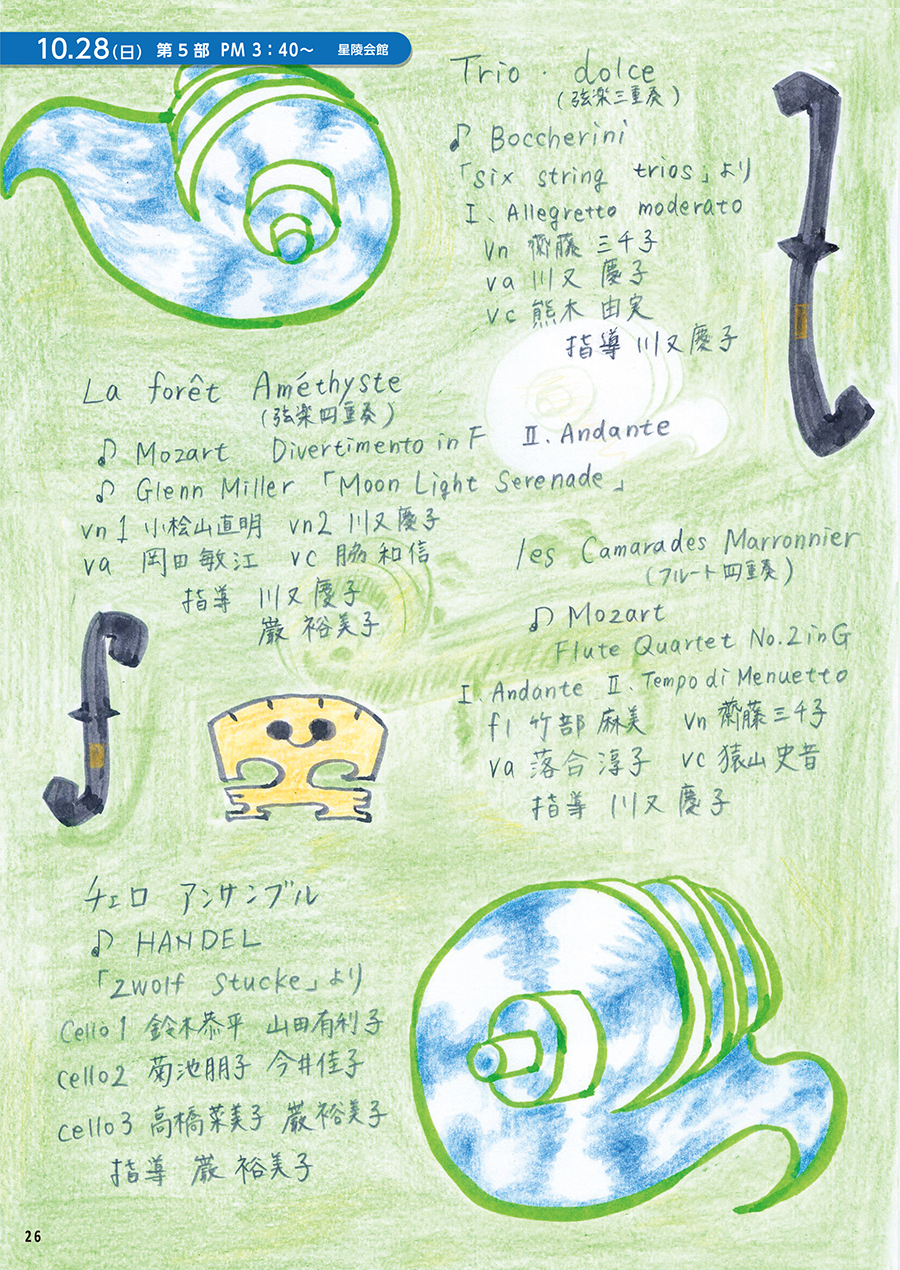 10.28(日) 第5部 PM 3:40〜 星陵会館
Trio・dolce
(弦楽三重奏)
♪ Boccherini
「six string trios」より
I、Allegretto moderato
vn 齋藤 三千子
va 川又 慶子
vc 熊木 由実
指導 川又慶子
La forêt Améthyste
(弦楽四重奏)
♪ Mozart Divertimento in F II、Andante
♪ Glenn Miller 「Moon Light Serenade」
vn1 小桧山直明 vn2 川又慶子
va 岡田敏江 vc 脇 和信
指導 川又慶子
巌 裕美子
les Camarades Marronnier
(フルート四重奏)
♪ Mozart
Flute Quartet No.2 in G
I、Andante II、Tempo di Menuetto
fl 竹部 麻美 vn 齋藤三千子
va 落合淳子 vc 猿山史音
指導 川又 慶子
チェロ アンサンブル
♪ HANDEL
「zwolf stucke」より
Cello1 鈴木恭平 山田有利子
cello2 菊池朋子 今井佳子
cello3 高橋菜美子 巌裕美子
指導 巌 裕美子
26